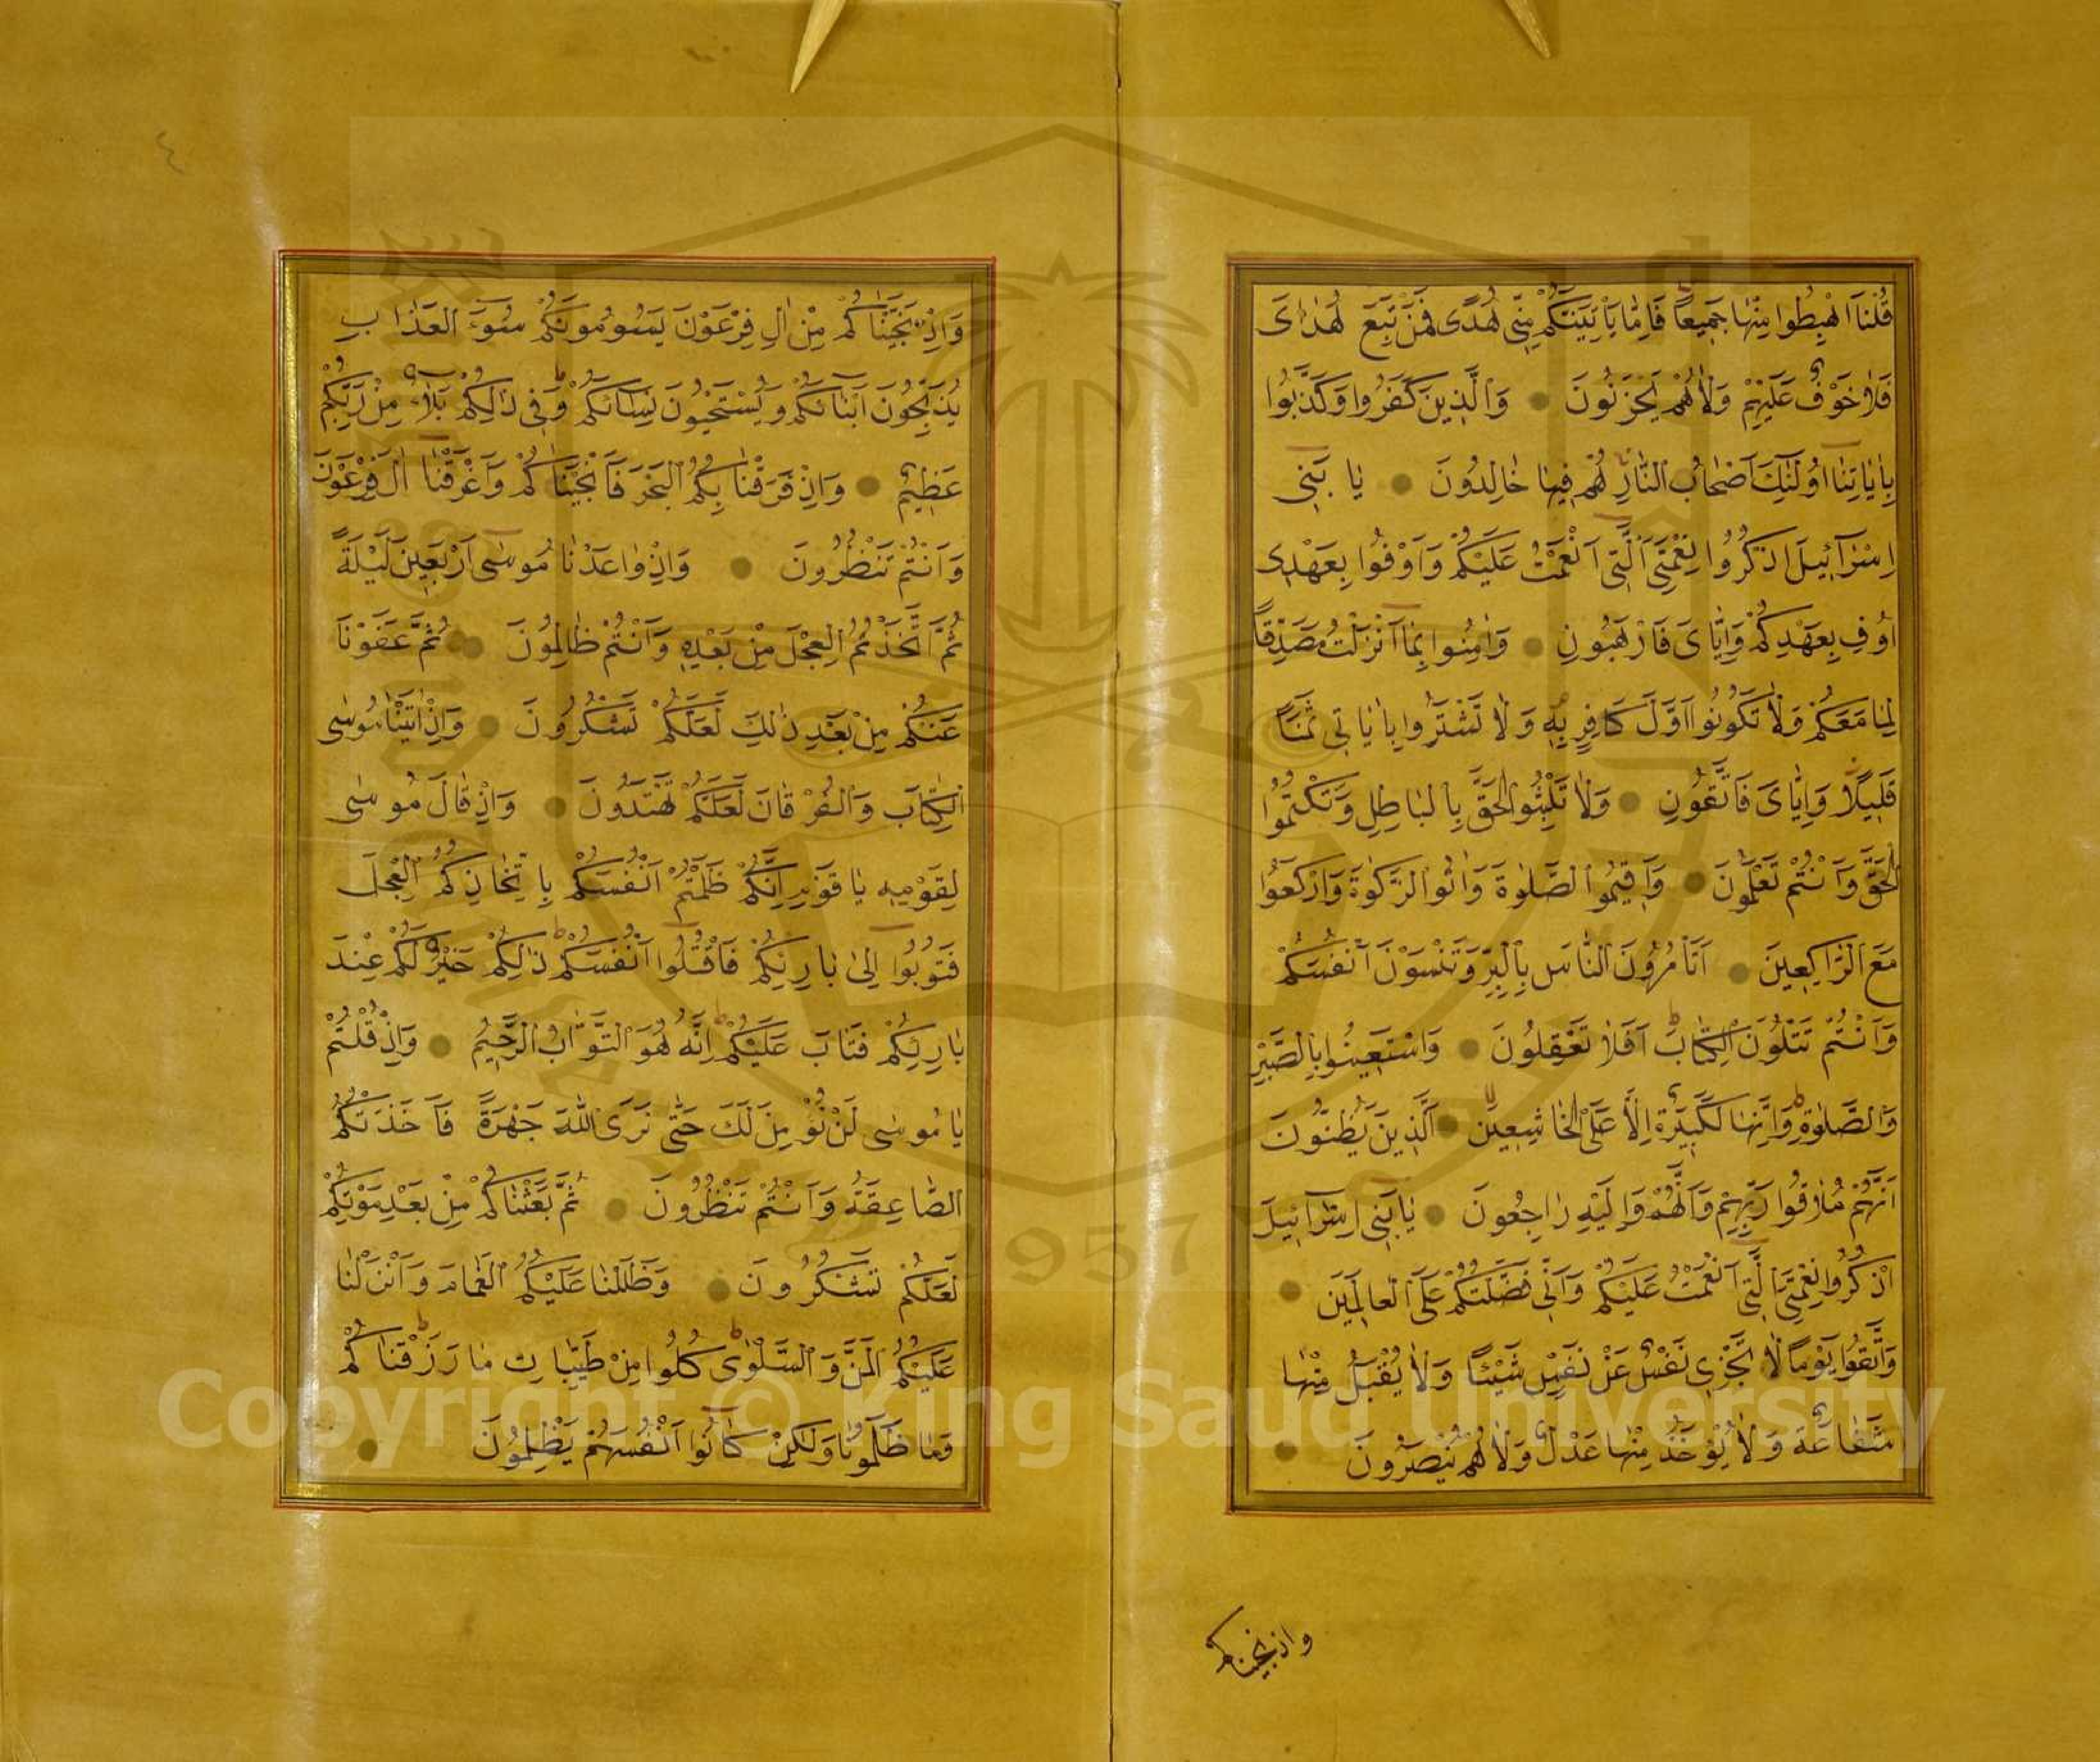 قُلْنَا اهْبِطُوا مِنْهَا جَمِيعًا فَاِمَّا يَأْتِيَنَّكُمْ مِنّٖى هُدًى فَمَنْ تَبِعَ هُدَاىَ
فَلَا خَوْفٌ عَلَيْهِمْ وَلَا هُمْ يَحْزَنُونَ ● وَالَّذٖينَ كَفَرُوا وَكَذَّبُوا
بِاٰيَاتِنَا اُولٰٓئِكَ اَصْحَابُ النَّارِ هُمْ فٖيهَا خَالِدُونَ ● يَا بَنٖى
اِسْرَآئٖيلَ اذْكُرُوا نِعْمَتِىَ الَّتٖى اَنْعَمْتُ عَلَيْكُمْ وَاَوْفُوا بِعَهْدٖى
اُوفِ بِعَهْدِكُمْ وَاِيَّاىَ فَارْهَبُونِ ● وَاٰمِنُوا بِمَا اَنْزَلْتُ مُصَدِّقًا
لِمَا مَعَكُمْ وَلَا تَكُونُوا اَوَّلَ كَافِرٍ بِهٖ وَلَا تَشْتَرُوا بِاٰيَاتٖى ثَمَنًا
قَلٖيلًا وَاِيَّاىَ فَاتَّقُونِ ● وَلَا تَلْبِسُوا الْحَقَّ بِالْبَاطِلِ وَتَكْتُمُوا
الْحَقَّ وَاَنْتُمْ تَعْلَمُونَ ● وَاَقٖيمُوا الصَّلٰوةَ وَاٰتُوا الزَّكٰوةَ وَارْكَعُوا
مَعَ الرَّاكِعٖينَ ● اَتَأْمُرُونَ النَّاسَ بِالْبِرِّ وَتَنْسَوْنَ اَنْفُسَكُمْ
وَاَنْتُمْ تَتْلُونَ الْكِتَابَ اَفَلَا تَعْقِلُونَ ● وَاسْتَعٖينُوا بِالصَّبْرِ
وَالصَّلٰوةِ وَاِنَّهَا لَكَبٖيرَةٌ اِلَّا عَلَى الْخَاشِعٖينَ ● اَلَّذٖينَ يَظُنُّونَ
اَنَّهُمْ مُلَاقُوا رَبِّهِمْ وَاَنَّهُمْ اِلَيْهِ رَاجِعُونَ ● يَا بَنٖى اِسْرَآئٖيلَ
اذْكُرُوا نِعْمَتِىَ الَّتٖى اَنْعَمْتُ عَلَيْكُمْ وَاَنّٖى فَضَّلْتُكُمْ عَلَى الْعَالَمٖينَ ●
وَاتَّقُوا يَوْمًا لَا تَجْزٖى نَفْسٌ عَنْ نَفْسٍ شَيْئًا وَلَا يُقْبَلُ مِنْهَا
شَفَاعَةٌ وَلَا يُؤْخَذُ مِنْهَا عَدْلٌ وَلَا هُمْ يُنْصَرُونَ ●
واذ نجيناكم
٤
وَاِذْ نَجَّيْنَاكُمْ مِنْ اٰلِ فِرْعَوْنَ يَسُومُونَكُمْ سُوٓءَ الْعَذَابِ
يُذَبِّحُونَ اَبْنَآئَكُمْ وَيَسْتَحْيُونَ نِسَآئَكُمْ وَفٖى ذٰلِكُمْ بَلَآءٌ مِنْ رَبِّكُمْ
عَظٖيمٌ ● وَاِذْ فَرَقْنَا بِكُمُ الْبَحْرَ فَاَنْجَيْنَاكُمْ وَاَغْرَقْنَا اٰلَ فِرْعَوْنَ
وَاَنْتُمْ تَنْظُرُونَ ● وَاِذْ وَاعَدْنَا مُوسٰى اَرْبَعٖينَ لَيْلَةً
ثُمَّ اتَّخَذْتُمُ الْعِجْلَ مِنْ بَعْدِهٖ وَاَنْتُمْ ظَالِمُونَ ● ثُمَّ عَفَوْنَا
عَنْكُمْ مِنْ بَعْدِ ذٰلِكَ لَعَلَّكُمْ تَشْكُرُونَ ● وَاِذْ اٰتَيْنَا مُوسٰى
الْكِتَابَ وَالْفُرْقَانَ لَعَلَّكُمْ تَهْتَدُونَ ● وَاِذْ قَالَ مُوسٰى
لِقَوْمِهٖ يَا قَوْمِ اِنَّكُمْ ظَلَمْتُمْ اَنْفُسَكُمْ بِاتِّخَاذِكُمُ الْعِجْلَ
فَتُوبُوا اِلٰى بَارِئِكُمْ فَاقْتُلُوا اَنْفُسَكُمْ ذٰلِكُمْ خَيْرٌ لَكُمْ عِنْدَ
بَارِئِكُمْ فَتَابَ عَلَيْكُمْ اِنَّهُ هُوَ التَّوَّابُ الرَّحٖيمُ ● وَاِذْ قُلْتُمْ
يَا مُوسٰى لَنْ نُؤْمِنَ لَكَ حَتّٰى نَرَى اللّٰهَ جَهْرَةً فَاَخَذَتْكُمُ
الصَّاعِقَةُ وَاَنْتُمْ تَنْظُرُونَ ● ثُمَّ بَعَثْنَاكُمْ مِنْ بَعْدِ مَوْتِكُمْ
لَعَلَّكُمْ تَشْكُرُونَ ● وَظَلَّلْنَا عَلَيْكُمُ الْغَمَامَ وَاَنْزَلْنَا
عَلَيْكُمُ الْمَنَّ وَالسَّلْوٰى كُلُوا مِنْ طَيِّبَاتِ مَا رَزَقْنَاكُمْ
وَمَا ظَلَمُونَا وَلٰكِنْ كَانُوا اَنْفُسَهُمْ يَظْلِمُونَ ●
1957
Copyright © King Saud University